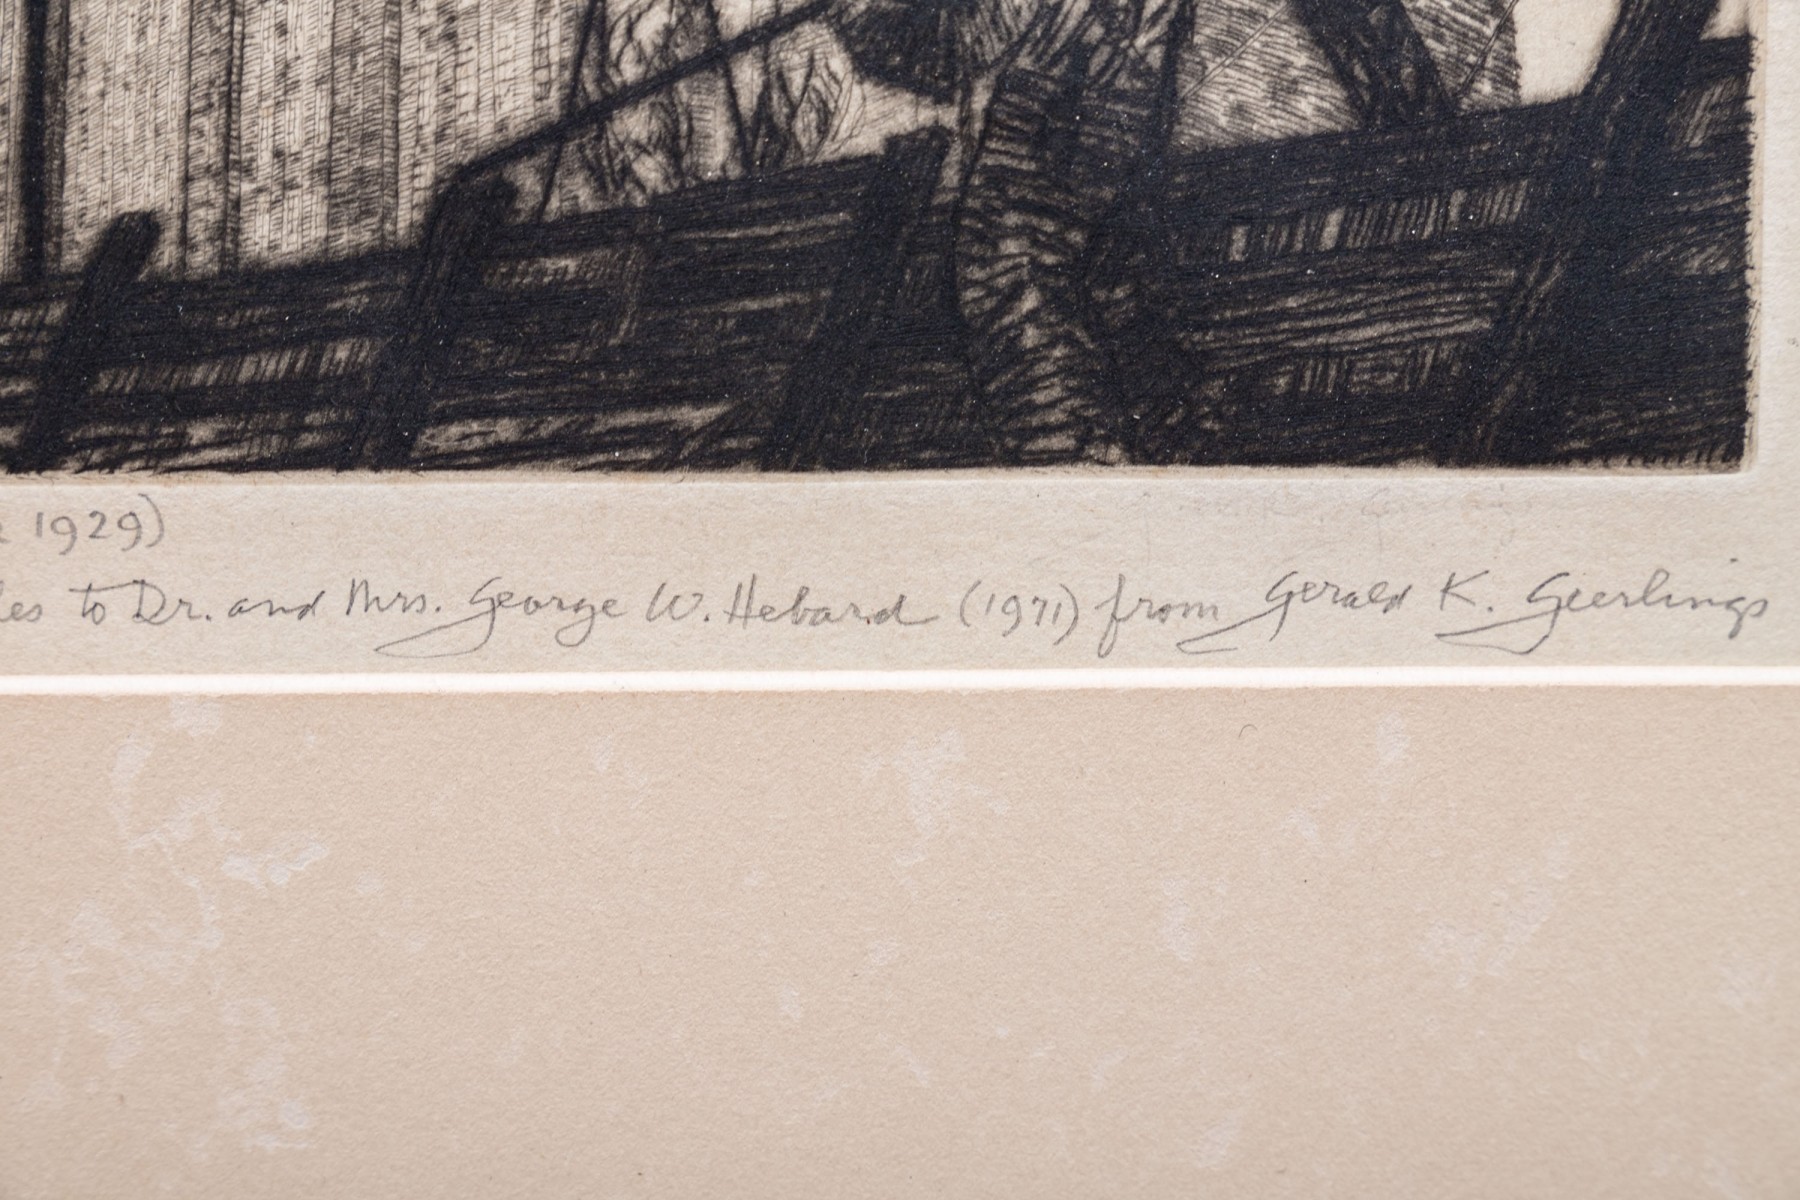 1929)
to Dr. and Mrs. George W. Hebard (1971) from Gerald K. Geerlings